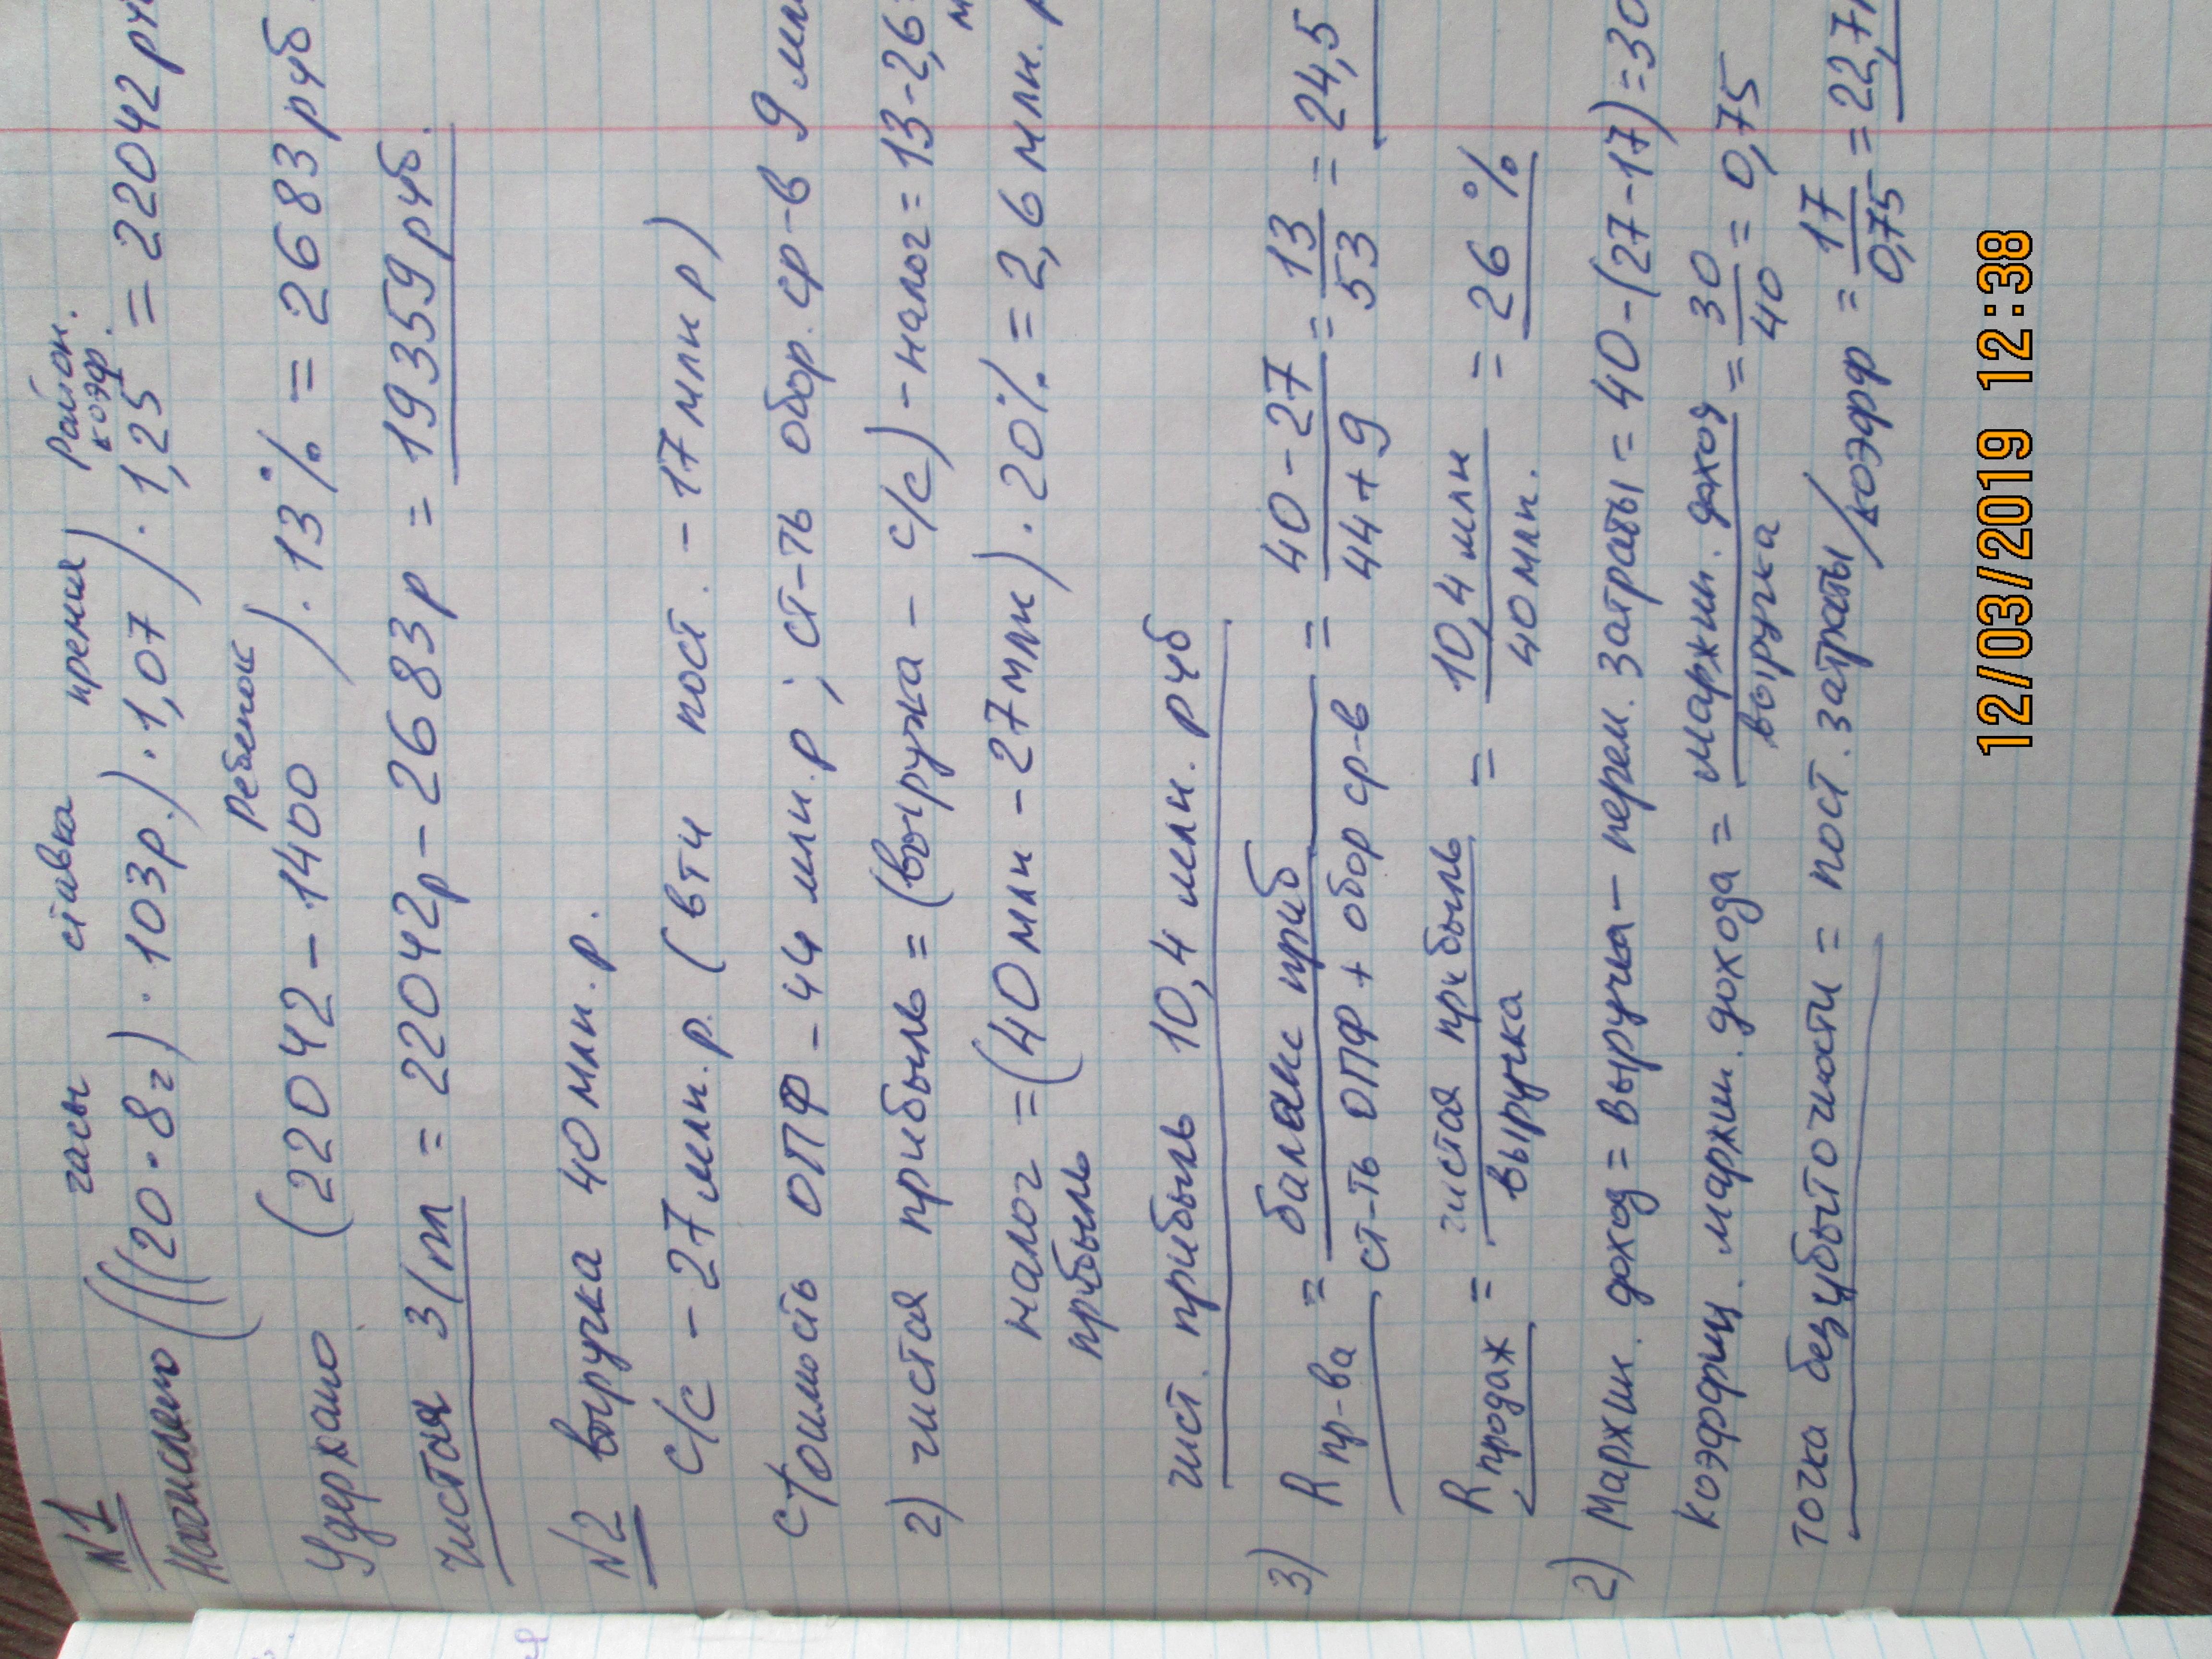 часы ставка премия Район. коэф.
№1
Начислено (((20·8ч)·103р.)·1,07)·1,25 = 22042 руб
Ребенок
Удержано (22042-1400)·13% = 2683 руб
Чистая З/т = 22042р-2683р = 19359 руб.
№2 выручка 40 млн.р.
С/с - 27 млн.р. (в тч пост. - 17 млн р)
Стоимость ОПФ - 44 млн.р; ст-ть обор. ср-в 9 млн
2) чистая прибыль = (выручка - с/с) - налог = 13-2,6=
налог = (40 млн - 27 млн)·20% = 2,6 млн. р
прибыль
чист. прибыль 10,4 млн. руб
3) R пр-ва = баланс приб / ст-ть ОПФ + обор ср-в = 40-27 / 44+9 = 13 / 53 = 24,5
R продаж = чистая прибыль / выручка = 10,4 млн / 40 млн. = 26 %
2) Маржин. доход = выручка - перем. затраты = 40-(27-17)=30
Коэффиц. маржин. дохода = маржин. доход / выручка = 30 / 40 = 0,75
точка безубыточности = пост. затраты/коэфф = 17 / 0,75 = 22,7
12/03/2019 12:38